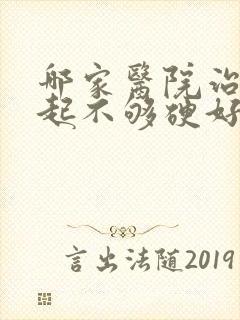 哪家醫院治
起不够硬好
言出法随2019